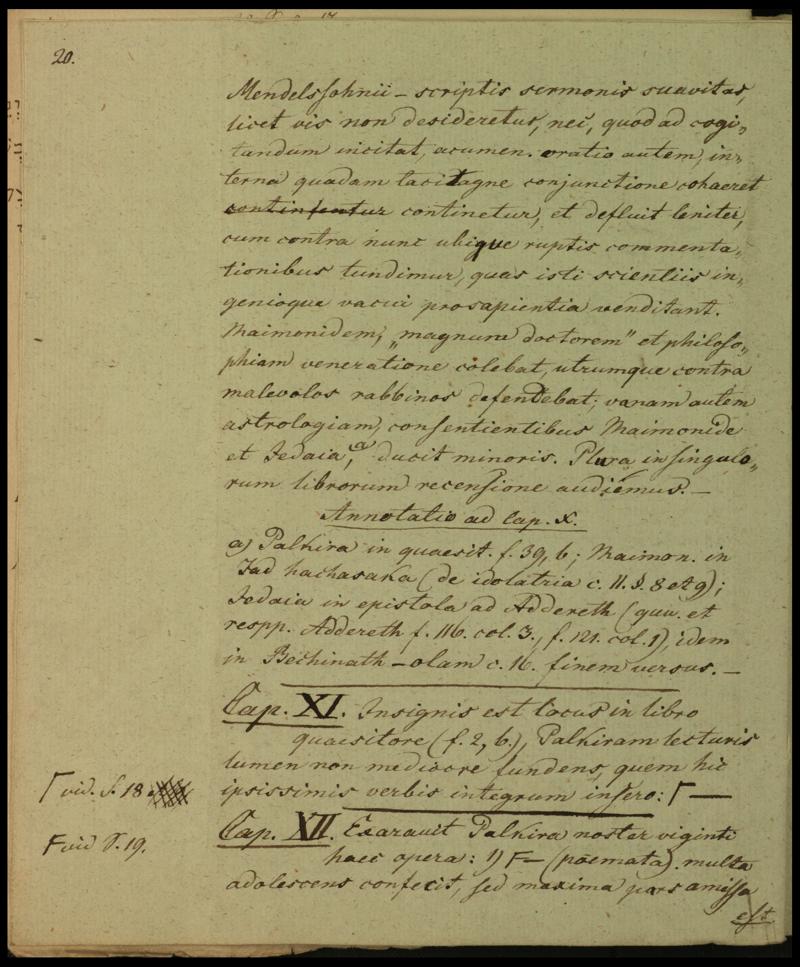 20.
Mendelssohnii – scriptis sermonis suavitas,
licet vis non desideretur, nec, quod ad cogi„
tandum incitat, acumen. oratio autem, in„
terna quadam tacitaque conjunctione cohaeret
continetur, et defluit leniter,
cum contra nunc ubique ruptis commenta„
tionibus tundimur, quas isti scientiis in„
genioque vacui pro sapientia venditant.
Maimonidem, „magnum doctorem" et philoso„
phiam veneratione colebat, utrumque contra
malevolos rabbinos defendebat; vanam autem
astrologiam, consentientibus Maimonide
et Jedaia, a) ducit minoris. Plura in singulo„
rum librorum recensione audiemus. –
Annotatio ad Cap. X.
a) Palkira in quaesit. f. 39, b; Maimon. in
Jad hachasaka (de idolatria c. 11. §. 8 et 9);
Jedaia in epistola ad Addereth (quu. et
respp. Addereth f. 116. col. 3., f. 121. col. 1), idem
in Bechinath – olam c. 16. finem versus. –
Cap. XI. Insignis est locus in libro
quaesitore (f. 2, b.), Palkiram lecturis
lumen non mediocre fundens, quem hic
ipsissimis verbis integrum infero: Γ —
Γ vid. S. 18
Cap. XII. Exaravit Palkira noster viginti
F vid S. 19.
haec opera: 1) F – (poemata). multa
adolescens confecit, sed maxima pars amissa
est